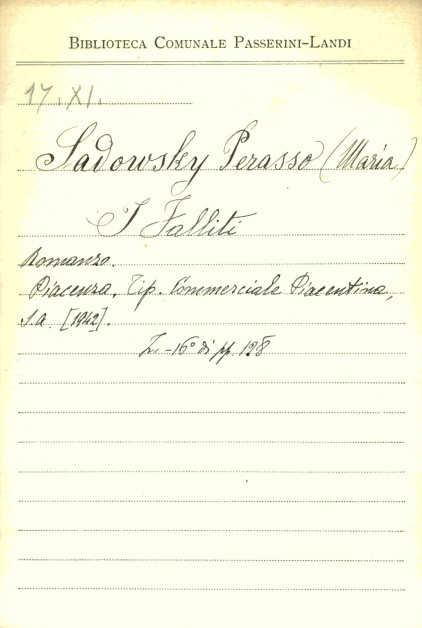 BIBLIOTECA COMUNALE PASSERINI-LANDI
17.XI.
Sadowsky Perasso (Maria)
I Falliti
Romanzo.
Piacenza, Tip. Commerciale Piacentina,
s.a. [1942].
-16° di pp. 128